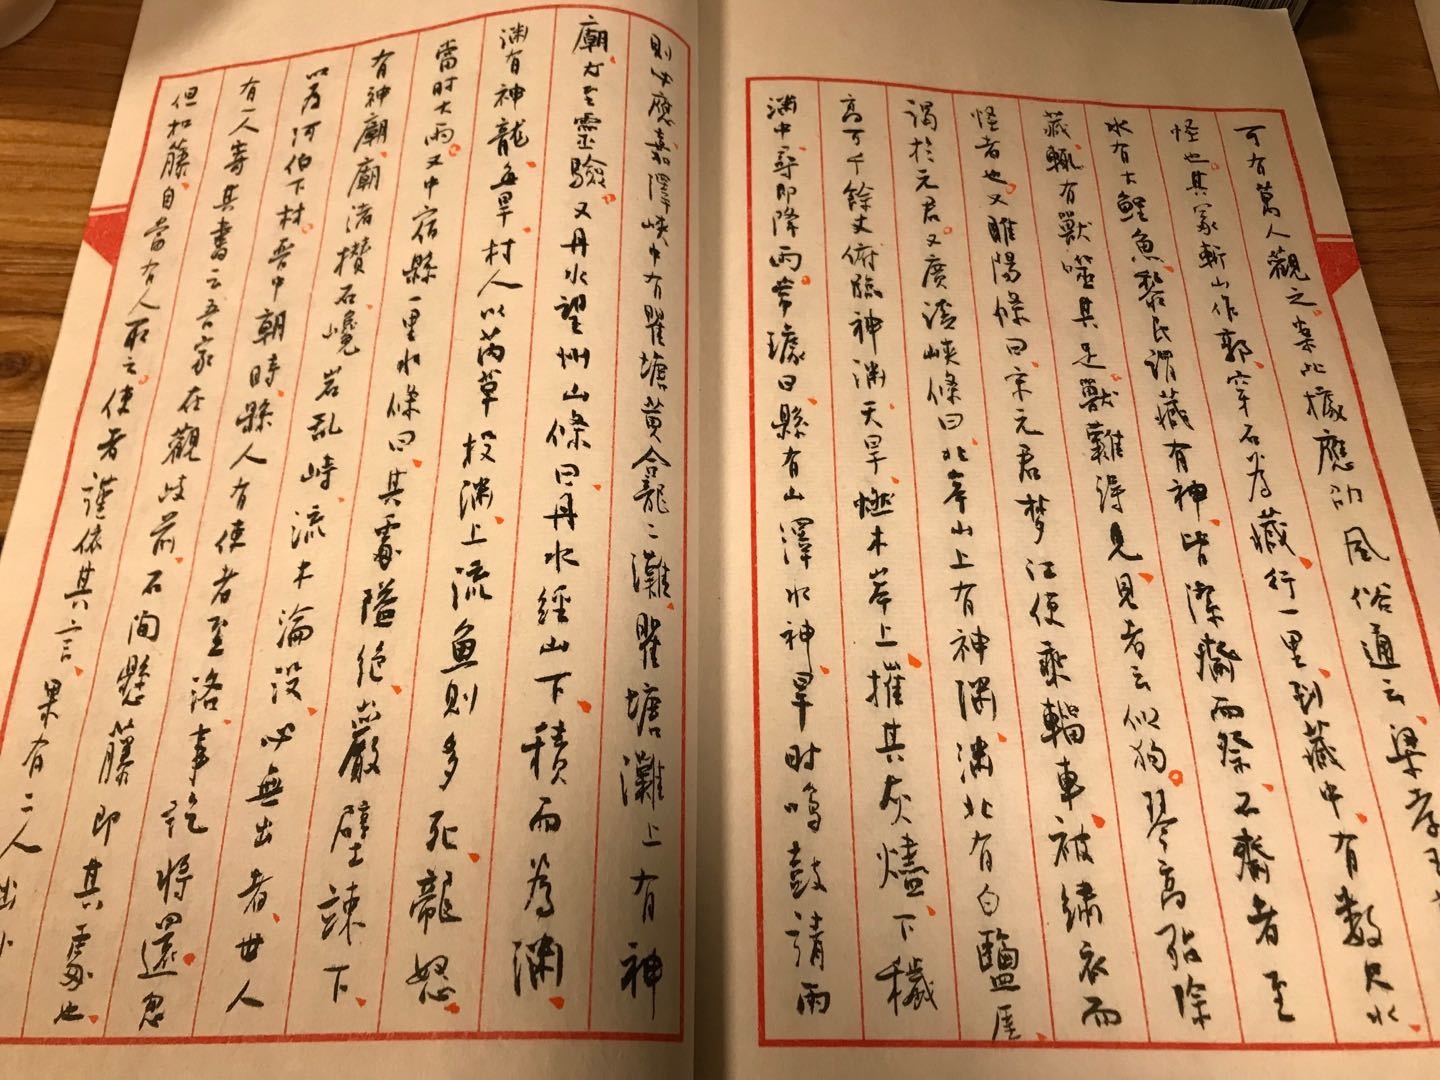 可有萬人觀之案此據應劭風俗通云梁孝王
怪也其冢斬山作郭穿石為藏行一里到藏中有數尺水
水有大鯉魚黎民謂藏有神皆潔齋而祭不齋者至
藏輒有獸噬其足獸難得見見者云似狗琴高冶除
怪者也又睢陽條曰宋元君梦江使乘輜車被繡衣而
謁於元君又廣溪峽條曰北岸山上有神渊渊北有白鹽崖
高可千餘丈俯臨神渊天旱燃木岸上摧其灰燼下穢
渊中尋即降雨常璩曰縣有山澤水神旱时鳴鼓請雨
則必應嘉澤峽中有瞿塘黄龕二灘瞿塘灘上有神
廟尤至靈驗又丹水望州山條曰丹水經山下積而為渊
渊有神龍每旱村人以芮草投渊上流魚則多死龍怒
當时大雨又中宿縣一里水條曰其處隘絕巖壁竦下
有神廟廟渚攢石巉岩乱峙流木淪没必無出者世人
以為河伯下材晋中朝時縣人有使者至洛事訖將還忽
有一人寄其書云吾家在觀岐前石間懸藤即其處也
但扣藤自當有人取之使者謹依其言果有二人出水